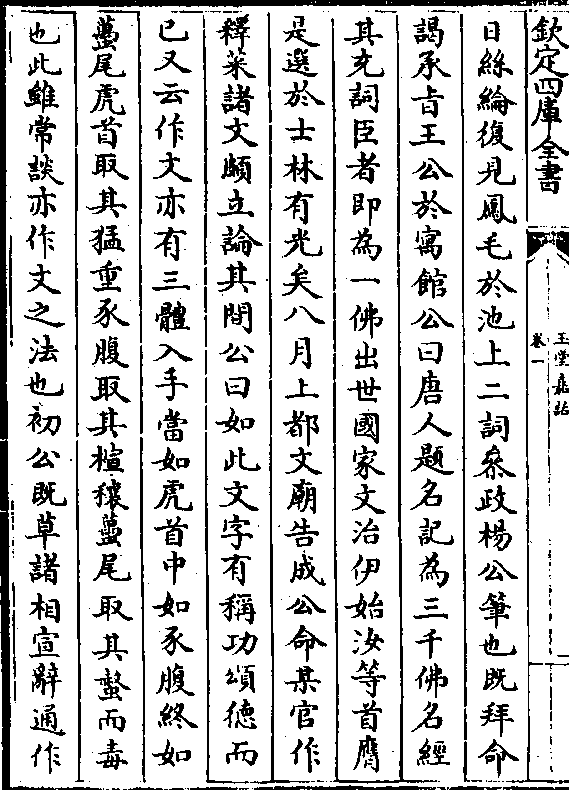 欽定四庫全書
玉堂嘉話
卷一
日絲綸復見鳳毛於池上二詞叅政楊公筆也既拜命
謁承㫖王公於寓館公曰唐人題名記為三千佛名經
其充詞臣者即為一佛出世國家文治伊始汝等首膺
是選於士林有光矣八月上都文廟告成公命某官作
釋菜諸文頗立論其間公曰如此文字有稱功頌德而
已又云作文亦有三體入手當如虎首中如豕腹終如
蠆尾虎首取其猛重豕腹取其楦穰蠆尾取其螫而毒
也此雖常談亦作文之法也初公既草諸相宣辭通作